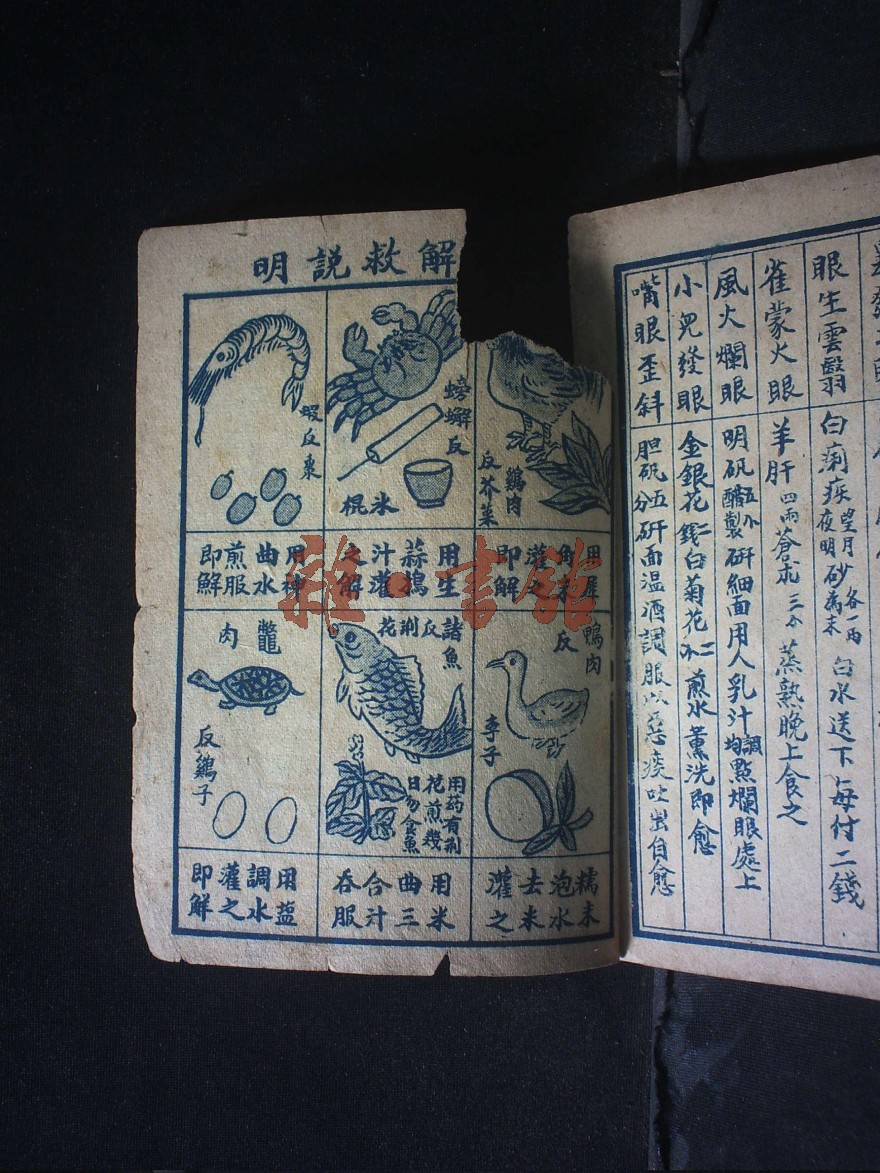 眼生雲翳
白痢疾望月砂夜明砂為末各一兩白水送下每付二錢
雀蒙火眼
羊肝四兩蒼朮三分蒸熟晚上食之
風火爛眼
明矾五分醋製研細面用人乳汁調均點爛眼處上
小兒發眼
金銀花二錢白菊花二分煎水薰洗即愈
嘴眼歪斜
胆矾五分研面温酒調服以惡痰吐出自愈
解救説明
鷄肉
反芥菜
螃蠏反
氷棍
蝦反棗
灌之
即解
用生
蒜搗
汁灌
之解
用神
曲水
煎服
即解
鴨肉
反
李子
諸魚
反荆
花
用药有荆
花煎幾
日勿食魚
鼈
肉
反鷄子
糯米
泡水
去米
灌之
用米
曲三
合汁
吞服
用盐
調水
灌之
即解
雜·書館